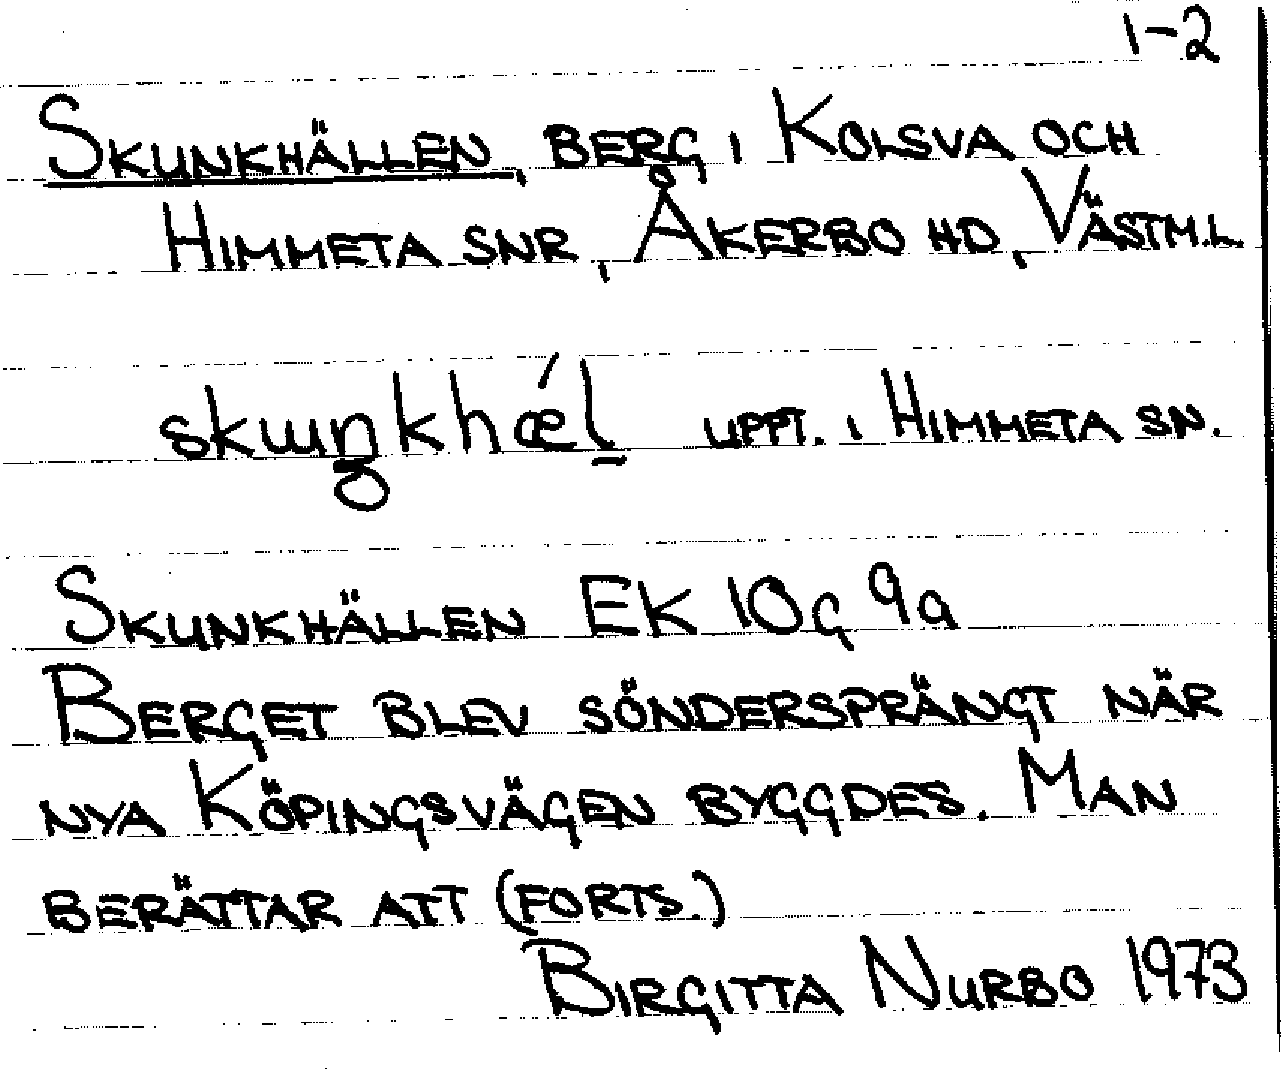 1-2
Skunkhällen, berg i Kolsva och
Himmeta snr, Åkerbo hd, Västm.l.
skɯŋkhǽl uppt. i Himmeta sn.
Skunkhällen EK 10G 9a
Berget blev söndersprängt när
nya Köpingsvägen byggdes. Man
berättar att (forts.)
Birgitta Nurbo 1973